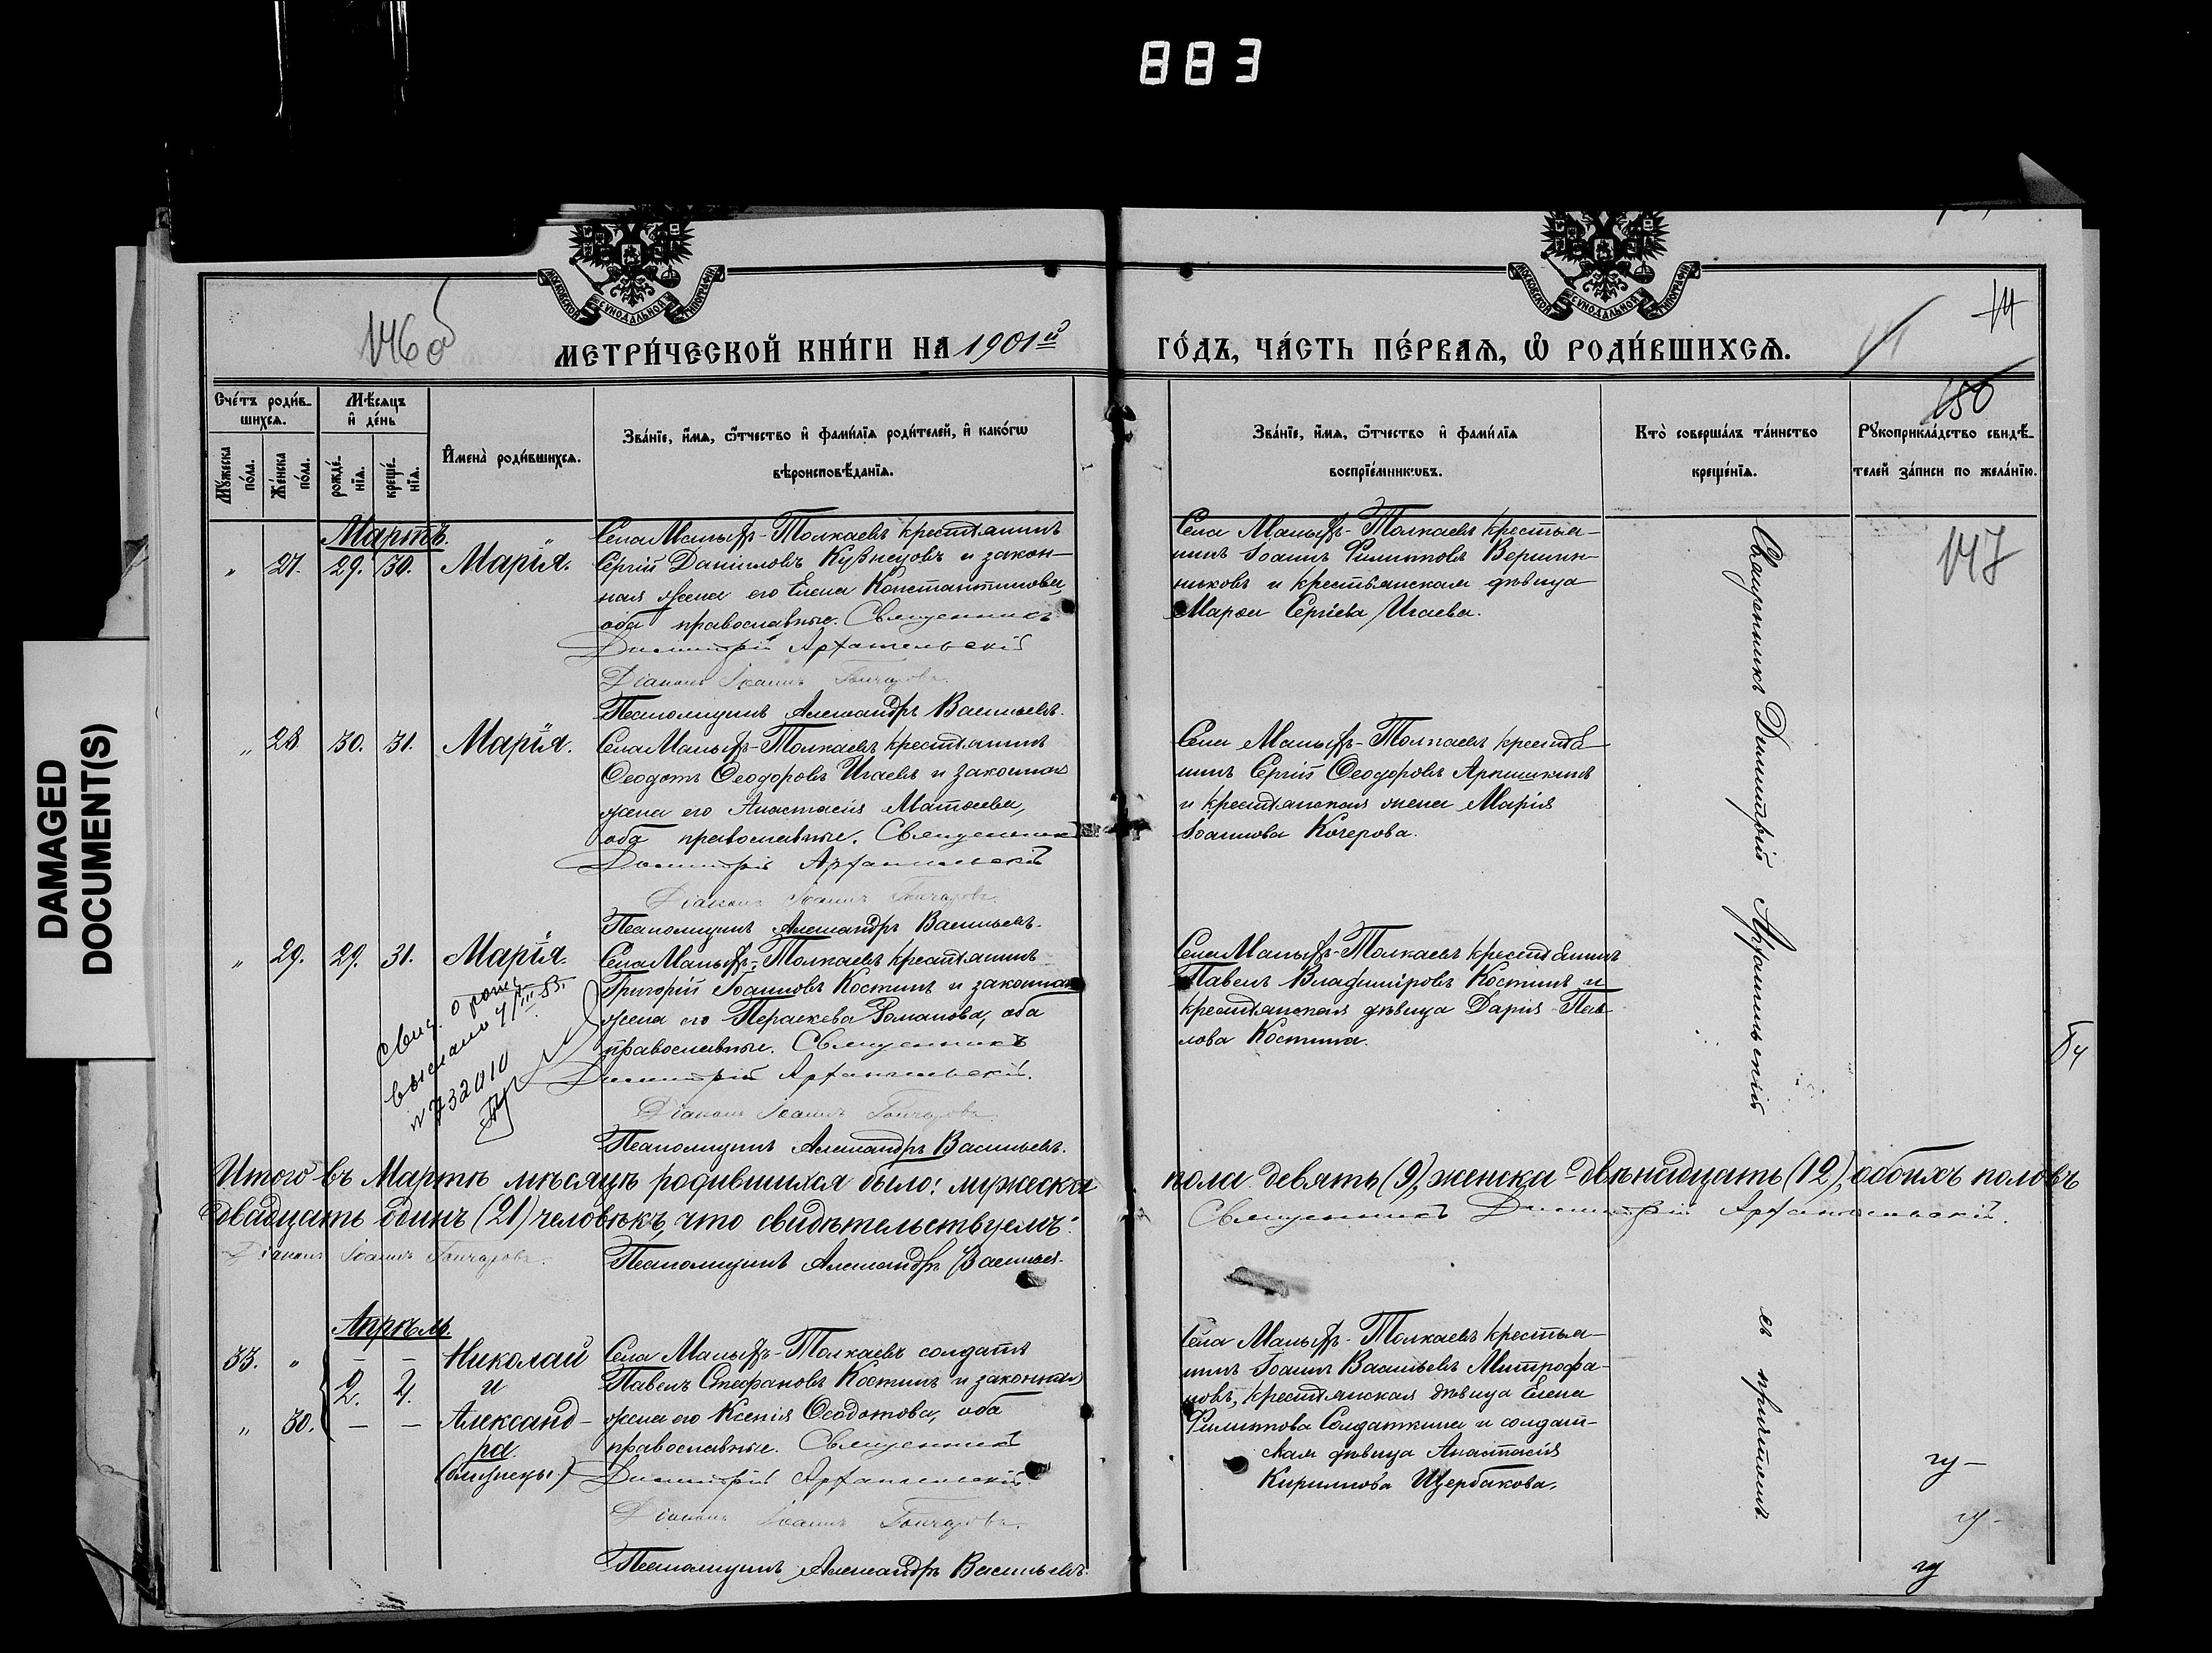 883
DAMAGED
DOCUMENT(S)
МОСКОВСКОЙ СѴНОДАЛЬНОЙ ТИПОГРАФІИ
МОСКОВСКОЙ СѴНОДАЛЬНОЙ ТИПОГРАФІИ
146 об
МЕТРИ́ЧЕСКОЙ КНИ́ГИ НА 1901й
ГО́ДЪ, ЧА́СТЬ ПЕ́РВАЯ, Ѡ҆ РОДИ́ВШИХСЯ.
14
150
147
Сче́тъ роди́в-
шихся.
Мѣ́сяцъ
и҆ де́нь
Мꙋ́жеска
по́ла.
Же́нска
по́ла.
рожде́-
нїя.
креще́-
нїя.
И҆мена̀ роди́вшихся.
Зва́нїе, и҆́мя, ѻ҆́тчество и҆ фами́лїя роди́телей, и҆ како́гѡ
вѣроисповѣ́данїя.
Зва́нїе, и҆́мя, ѻ҆́тчество и҆ фами́лїя
воспрїе́мниковъ.
Кто̀ соверша́лъ та́инство
креще́нїя.
Рꙋкоприкла́дство свидѣ́-
телей за́писи по жела́нїю.
Мартъ.
„ 27. 29. 30. Марія.
Села Малыхъ-Толкаевъ крестьянинъ
Сергій Даниловъ Кузнецовъ и закон-
ная жена его Елена Константинова,
оба православные. Священникъ
Димитрій Архангельскій
Діаконъ Іоаннъ Гончаровъ.
Псаломщикъ Александръ Васильевъ.
Села Малыхъ-Толкаевъ крестья-
нинъ Іоаннъ Филипповъ Вершин-
никовъ и крестьянская дѣвица
Марѳа Сергіева Игаева.
Священникъ Димитрій Архангельскій
„ 28 30. 31. Марія.
Села Малыхъ-Толкаевъ крестьянинъ
Ѳеодотъ Ѳеодоровъ Игаевъ и законная
жена его Анастасія Матѳеева,
оба православные. Священникъ
Димитрій Архангельскій
Діаконъ Іоаннъ Гончаровъ.
Псаломщикъ Александръ Васильевъ.
Села Малыхъ-Толкаевъ крестья-
нинъ Сергій Ѳеодоровъ
и крестьянская жена Марія
Іоаннова Кочерова.
„ 29. 29. 31. Марія.
Села Малыхъ-Толкаевъ крестьянинъ
Григорій Іоанновъ Костинъ и законная
жена его Параскева Романова, оба
православные. Священникъ
Димитрій Архангельскій.
Діаконъ Іоаннъ Гончаровъ
Псаломщикъ Александръ Васильевъ.
Села Малыхъ-Толкаевъ крестьянинъ
Павелъ Владиміровъ Костинъ и
крестьянская дѣвица Дарія Пав-
лова Костина.
Свид. о рожд.
выслано
№ 732010
Итого въ Мартѣ мѣсяцѣ родившихся было: мужеска
пола девять (9), женска двѣнадцать (12), обоихъ половъ
двадцать одинъ (21) человѣкъ, что свидѣтельствуемъ:
Священникъ Димитрій Архангельскій.
Діаконъ Іоаннъ Гончаровъ.
Псаломщикъ Александръ Васильев.
Апрѣль.
33. „ – – Николай
и
2. 4.
„ 30. – – Александ-
ра
(близнецы)
Села Малыхъ-Толкаевъ солдатъ
Павелъ Стефановъ Костинъ и законная
жена его Ксенія Ѳеодотова, оба
православные. Священникъ
Димитрій Архангельскій
Діаконъ Іоаннъ Гончаровъ.
Псаломщикъ Александръ Васильевъ.
Села Малыхъ-Толкаевъ крестья-
нинъ Іоаннъ Васильевъ Митрофа-
новъ, крестьянская дѣвица Елена
Филиппова Солдаткина и солдат-
ская дѣвица Анастасія
Кириллова Щербакова.
съ причтомъ.